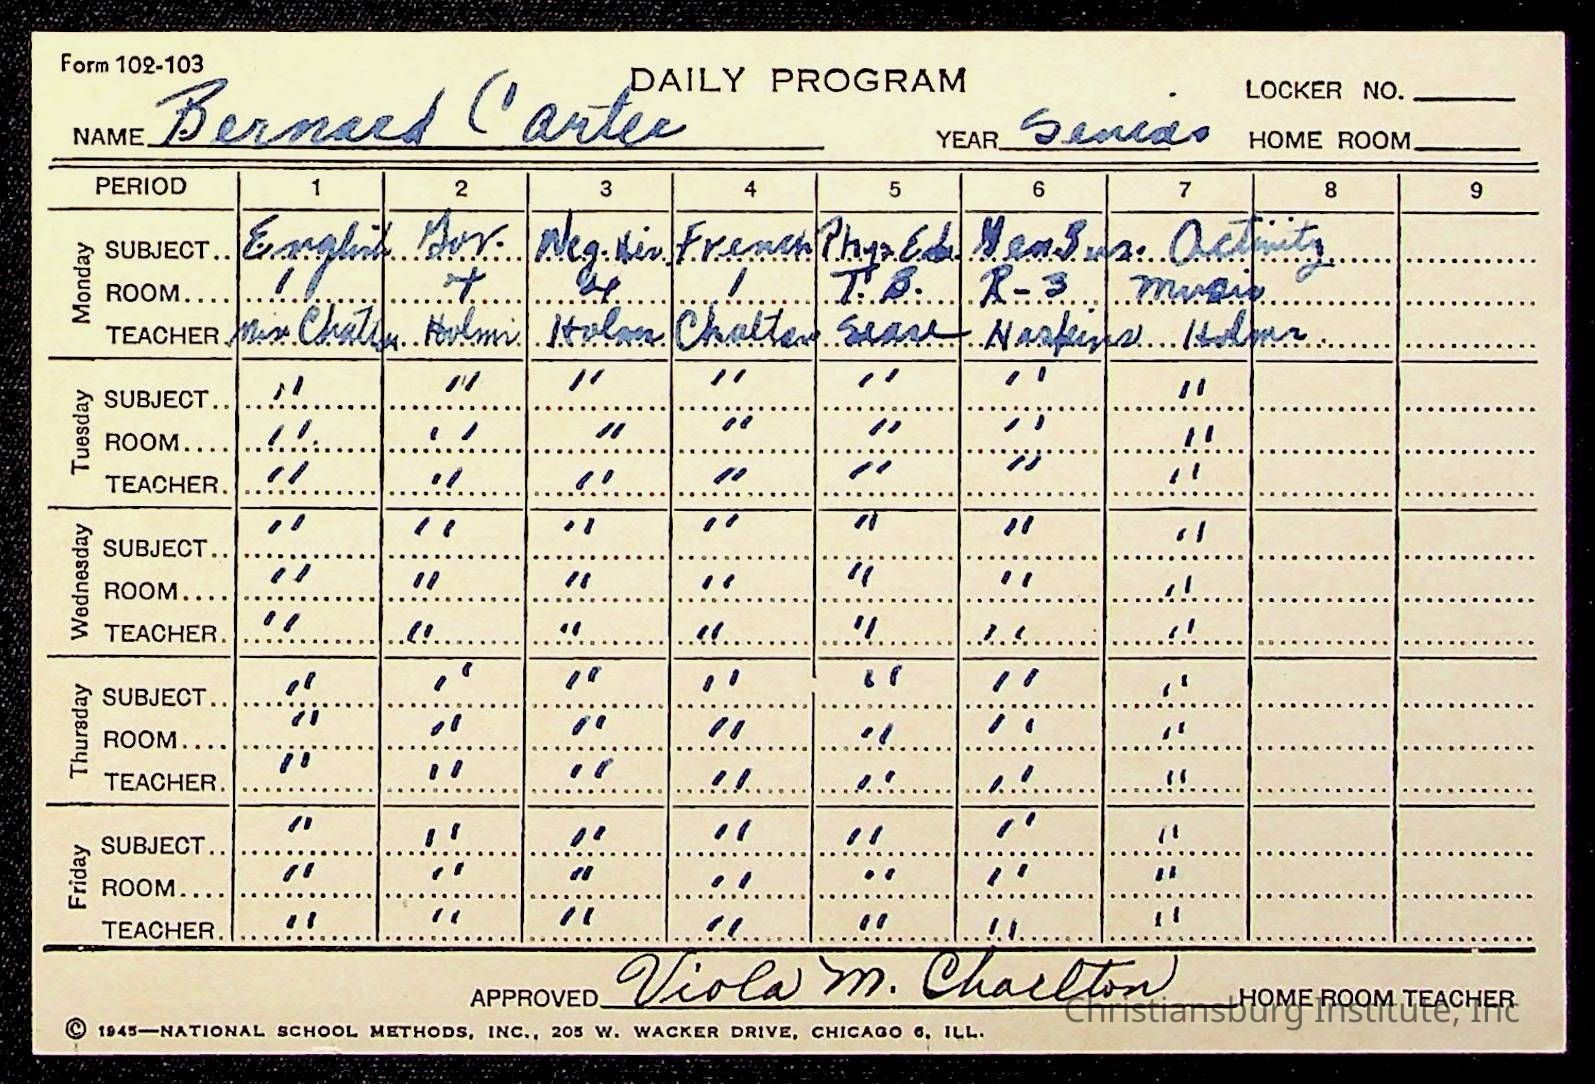 Form 102-103
DAILY PROGRAM
LOCKER NO.
NAME Bernard Carter YEAR Senior HOME ROOM
PERIOD 1 2 3 4 5 6 7 8 9
Monday
SUBJECT.. English Gov. Neg. His. French Phys. Ed. Gen Bus. Activity
ROOM.... 1 4 4 1 T. B. R-3 Music
TEACHER. Holm Charlton Sease Hopkins Holmr
Tuesday
SUBJECT.. " " " " " " "
ROOM.... " " " " " " "
TEACHER. " " " " " " "
Wednesday
SUBJECT.. " " " " " " "
ROOM.... " " " " " " "
TEACHER. " " " " " " "
Thursday
SUBJECT.. " " " " " " "
ROOM.... " " " " " " "
TEACHER. " " " " " " "
Friday
SUBJECT.. " " " " " " "
ROOM.... " " " " " " "
TEACHER. " " " " " " "
APPROVED Viola M. Charlton HOME ROOM TEACHER
Christiansburg Institute, Inc
© 1945—NATIONAL SCHOOL METHODS, INC., 205 W. WACKER DRIVE, CHICAGO 6, ILL.